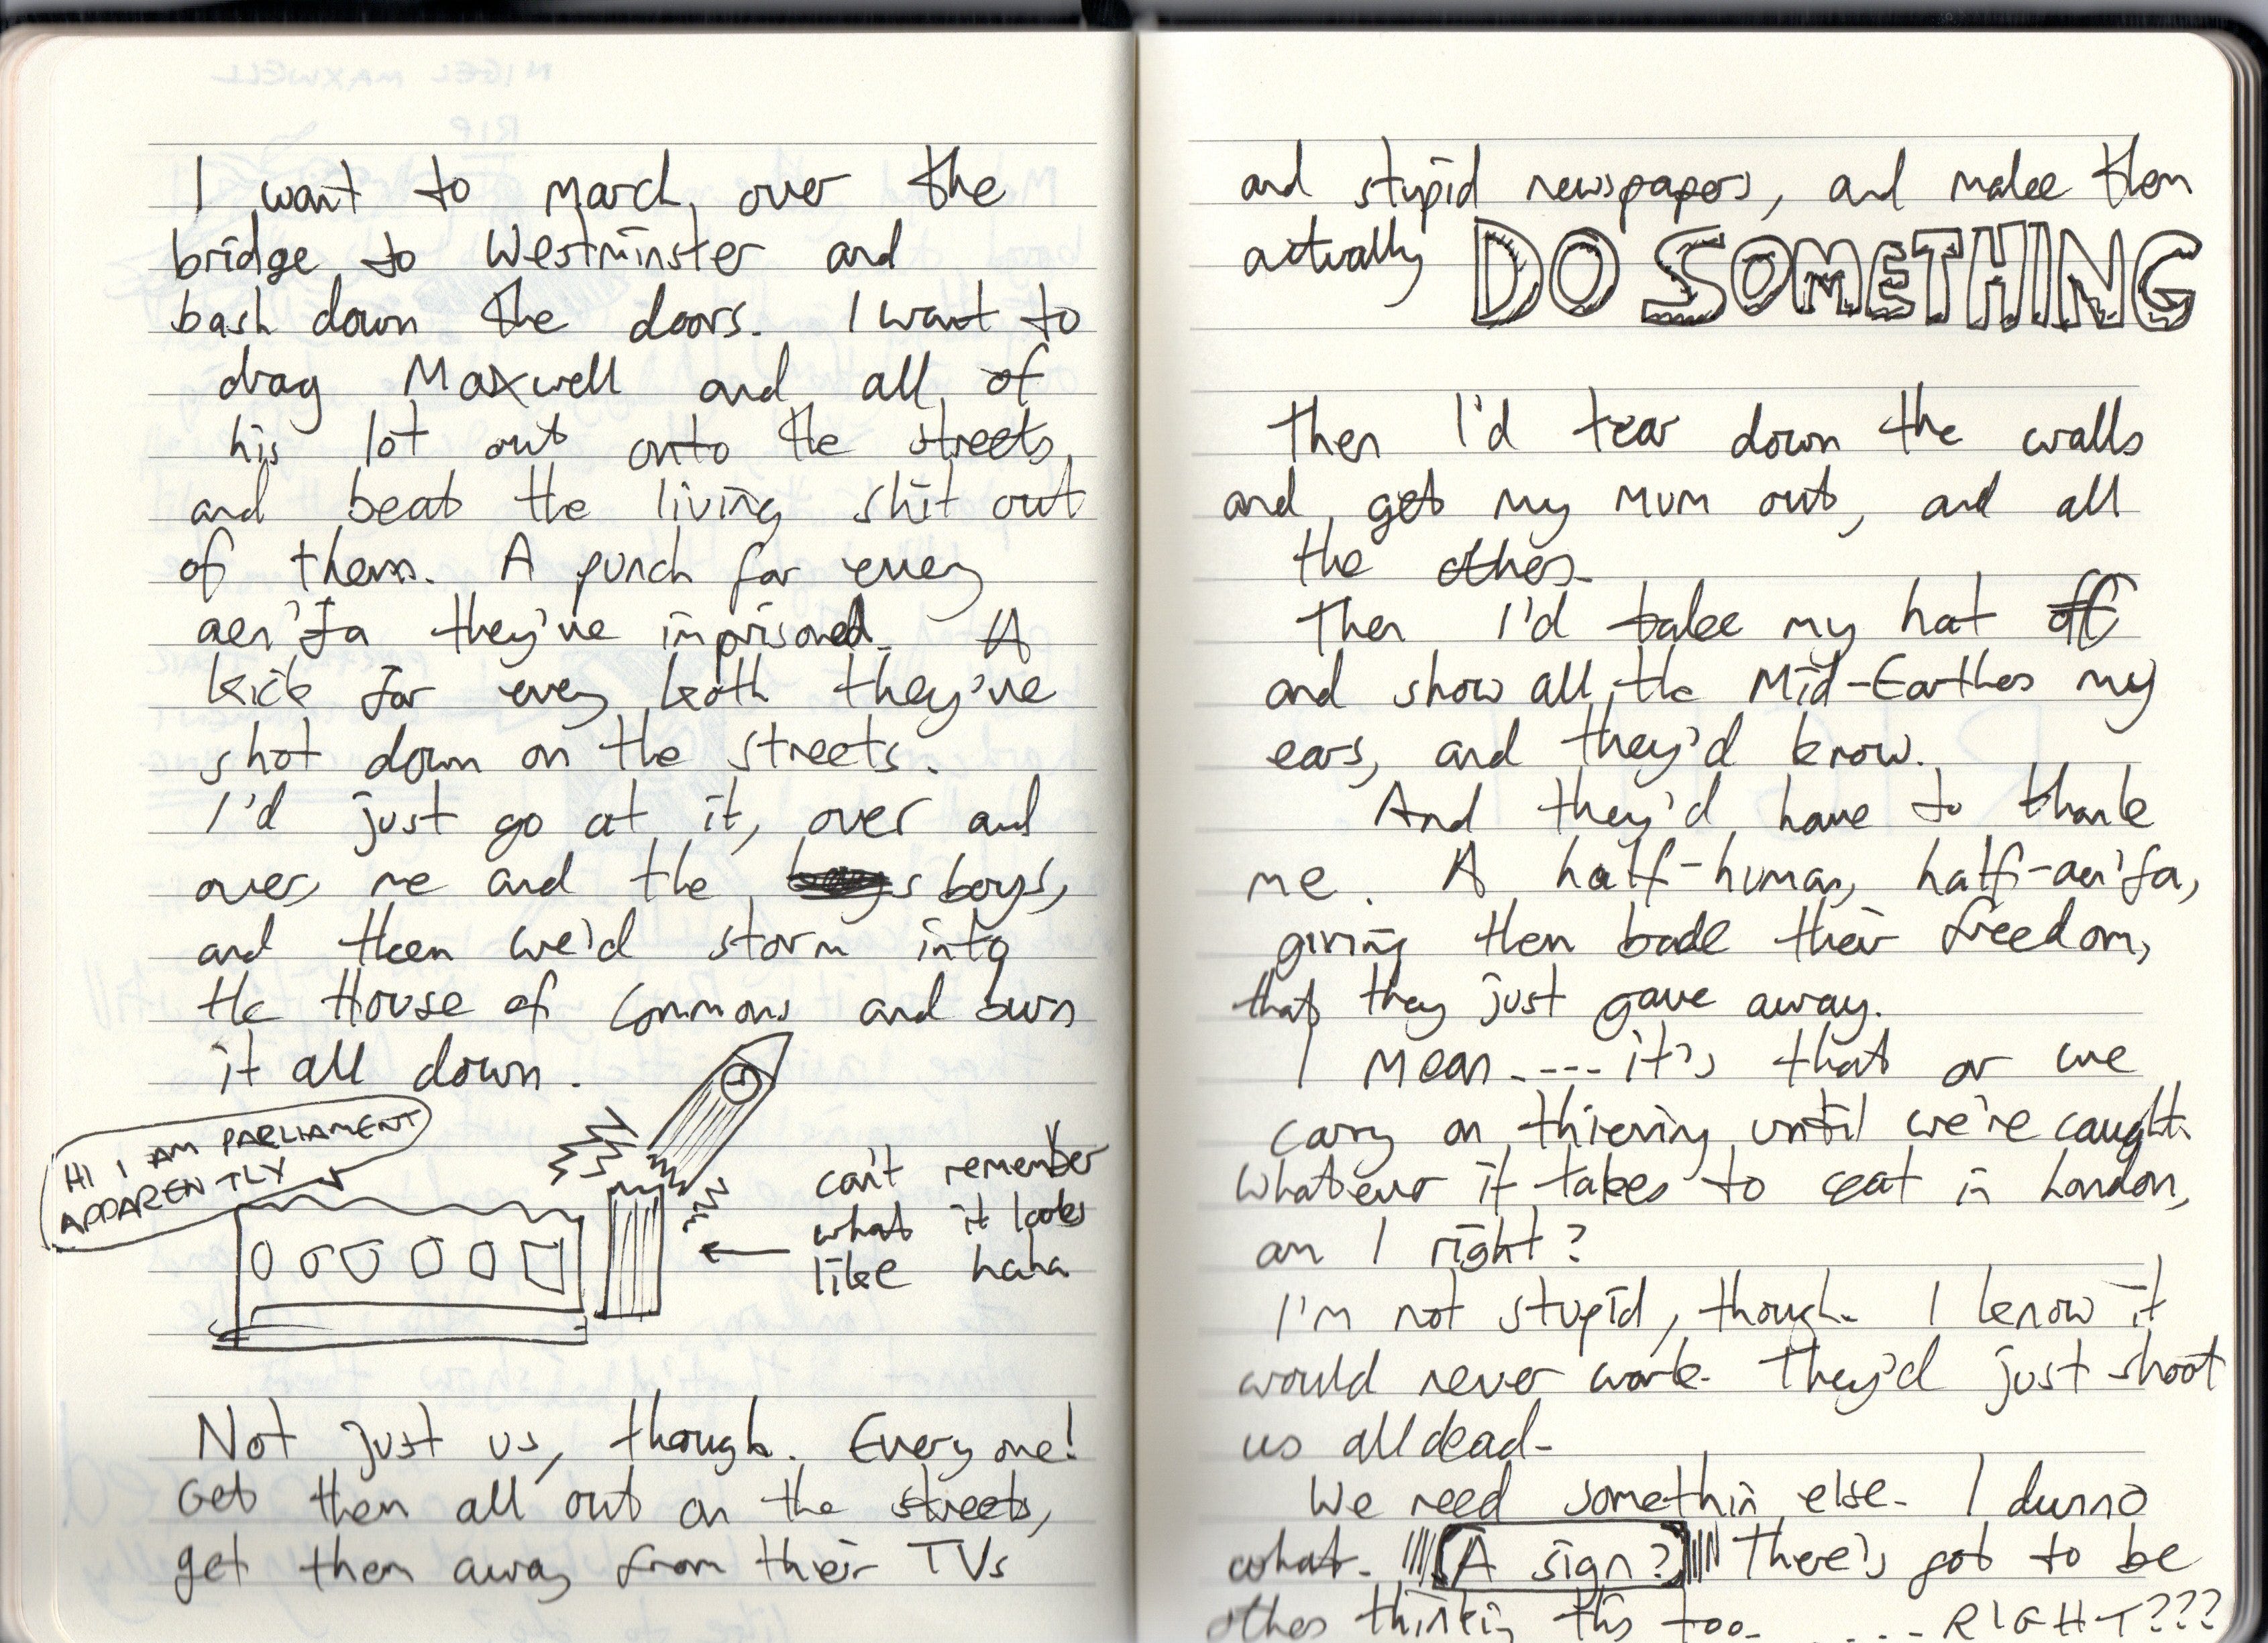 I want to march over the
bridge to Westminster and
bash down the doors. I want to
drag Maxwell and all of
his lot out onto the streets
and beat the living shit out
of them. A punch for every
aen'fa they've imprisoned. A
kick for every koth they've
shot down on the streets.
I'd just go at it, over and
over, me and the boys,
and then we'd storm into
the House of Commons and burn
it all down.
HI I AM PARLIAMENT
APPARENTLY
can't remember
what it looks
like haha
Not just us, though. Everyone!
Get them all out on the streets,
get them away from their TVs
and stupid newspapers, and make them
actually DO SOMETHING
Then I'd tear down the walls
and get my mum out, and all
the others.
Then I'd take my hat off
and show all the Mid-Earthers my
ears, and they'd know.
And they'd have to thank
me. A half-human, half-aen'fa,
giving them back their freedom,
that they just gave away.
I mean..... it's that or we
carry on thieving until we're caught.
Whatever it takes to eat in London,
am I right?
I'm not stupid, though. I know it
would never work. They'd just shoot
us all dead.
We need somethin else. I dunno
what. A sign? There's got to be
others thinkin this too. .... RIGHT???
NIGEL MAXWELL
RIP